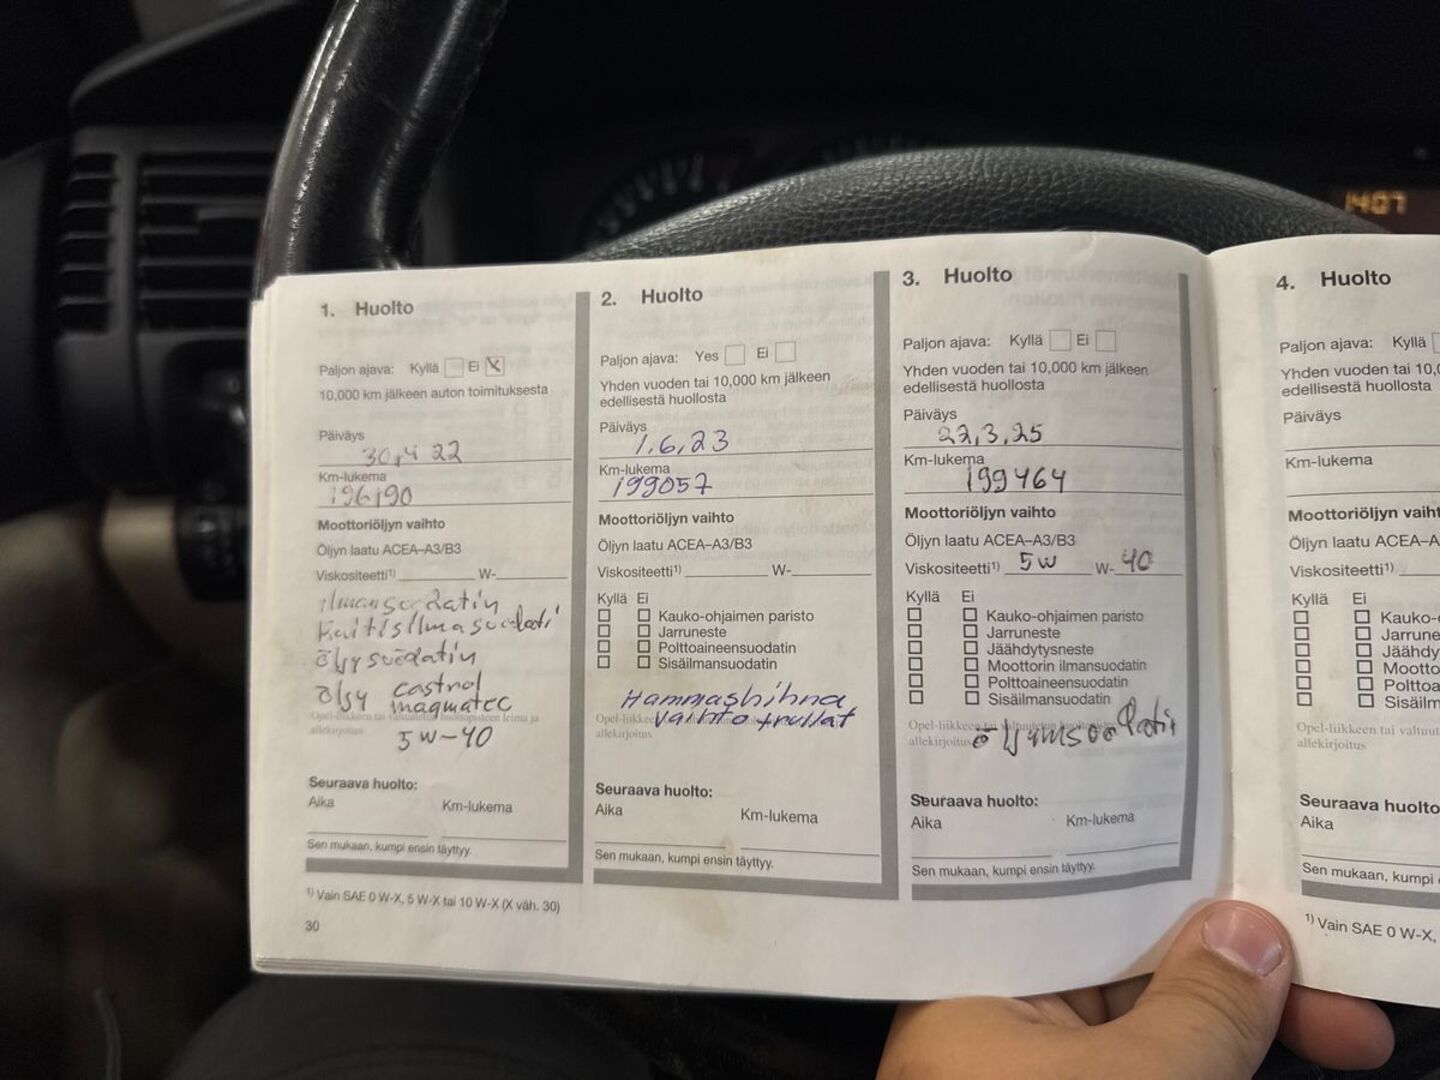 1407
1. Huolto
Paljon ajava: Kyllä Ei X
10,000 km jälkeen auton toimituksesta
Päiväys
30,4 22
Km-lukema
196190
Moottoriöljyn vaihto
Öljyn laatu ACEA–A3/B3
Viskositeetti1) W-
ilmansuodatin
Raitisilmasuodati
öljysuodatin
öljy castrol
magmatec
Opel-liikkeen tai valtuutetun huoltopisteen leima ja
allekirjoitus
5W-40
Seuraava huolto:
Aika Km-lukema
Sen mukaan, kumpi ensin täyttyy.
1) Vain SAE 0 W-X, 5 W-X tai 10 W-X (X väh. 30)
30
2. Huolto
Paljon ajava: Yes Ei
Yhden vuoden tai 10,000 km jälkeen
edellisestä huollosta
Päiväys
1,6,23
Km-lukema
199057
Moottoriöljyn vaihto
Öljyn laatu ACEA–A3/B3
Viskositeetti1) W-
Kyllä Ei
Kauko-ohjaimen paristo
Jarruneste
Polttoaineensuodatin
Sisäilmansuodatin
Hammashihna
vaihto + rullat
Opel-liikkeen
allekirjoitus
Seuraava huolto:
Aika Km-lukema
Sen mukaan, kumpi ensin täyttyy.
3. Huolto
Paljon ajava: Kyllä Ei
Yhden vuoden tai 10,000 km jälkeen
edellisestä huollosta
Päiväys
22,3,25
Km-lukema
199464
Moottoriöljyn vaihto
Öljyn laatu ACEA–A3/B3
Viskositeetti1) 5W W- 40
Kyllä Ei
Kauko-ohjaimen paristo
Jarruneste
Jäähdytysneste
Moottorin ilmansuodatin
Polttoaineensuodatin
Sisäilmansuodatin
Opel-liikkeen tai valtuutetun
allekirjoitus
Seuraava huolto:
Aika Km-lukema
Sen mukaan, kumpi ensin täyttyy.
4. Huolto
Paljon ajava: Kyllä
Yhden vuoden tai 10,0
edellisestä huollosta
Päiväys
Km-lukema
Moottoriöljyn vaiht
Öljyn laatu ACEA–A
Viskositeetti1)
Kyllä Ei
Kauko-
Jarrune
Jäähdy
Mootto
Polttoa
Sisäilm
Opel-liikkeen tai valtuut
allekirjoitus
Seuraava huolto
Aika
Sen mukaan, kumpi
1) Vain SAE 0 W-X,